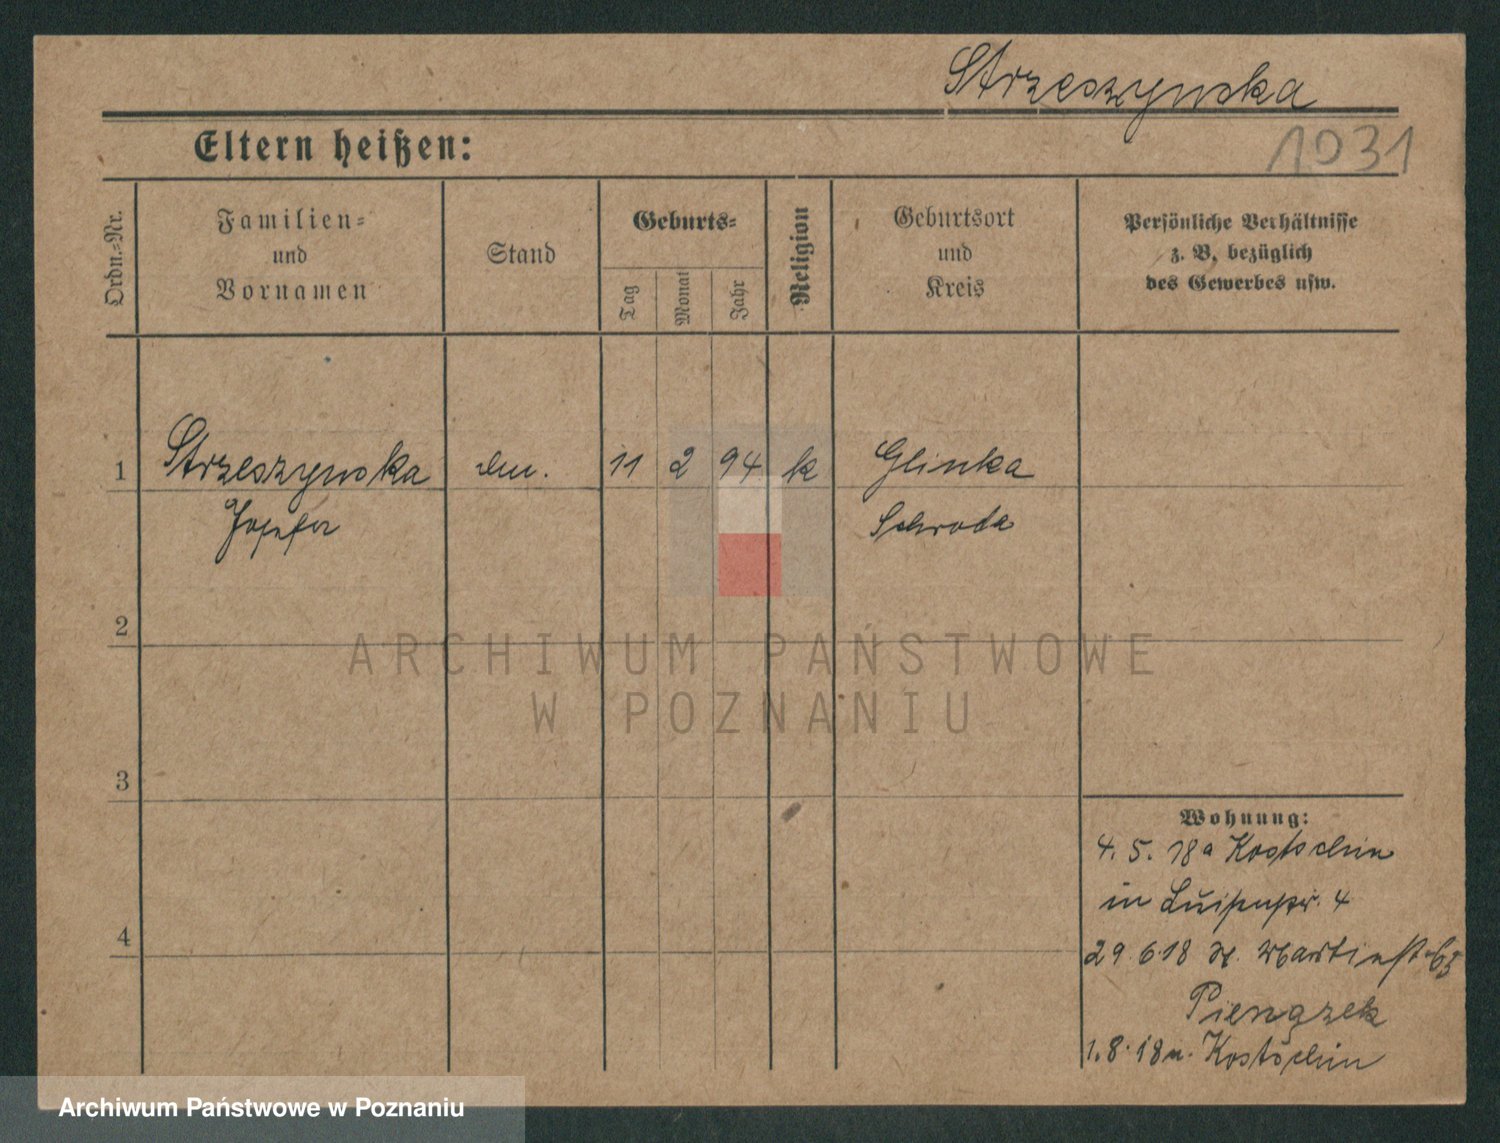 Strzeszynska
Eltern heißen:
1031
Ordn.=Nr.
Familien=
und
Vornamen
Stand
Geburts=
Tag
Monat
Jahr
Religion
Geburtsort
und
Kreis
Persönliche Verhältnisse
z. B. bezüglich
des Gewerbes usw.
1 Strzeszynska 11 2 94 k Glinka
Josefa Schroda
2
ARCHIWUM PAŃSTWOWE
W POZNANIU
3
Wohnung:
4. 5. 18 a Kostschin
in Luisenstr. 4
4
29. 6 18 Martinst. 63
Pienązek
1. 8. 18 n. Kostschin
Archiwum Państwowe w Poznaniu